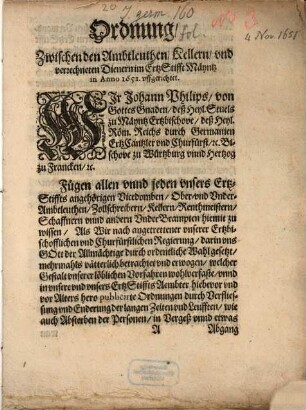 20 J. germ. 160 fol.
4 Nov 1651
Ordnung/
Zwischen den Ambtleuthen/ Kellern/ vnd
verrechneten Dienern im Ertz Stifft Mäyntz
in Anno 1651. vffgerichtet.
WIr Johann Philips/ von
Gottes Gnaden/ deß Heyl. Stuels
zu Mäyntz Ertzbischove/ deß Heyl.
Röm. Reichs durch Germanien
Ertz Cantzler vnd Churfürst/ ꝛc. Bi-
schove zu Würtzburg vnnd Hertzog
zu Francken/ ꝛc.
Fügen allen vnnd jeden vnsers Ertz-
Stiffts angehörigen Vicedomben/ Ober- vnd Vnder-
Ambtleuthen/ Zollschreibern/ Kellern/ Rentmeistern/
Schaffnern vnnd andern Vnder Beampten hiemit zu
wissen/ Als Wir nach angetrettener vnserer Ertzbi-
schofflichen vnd Churfürstlichen Regierung/ darin vns
GOtt der Allmächtige durch ordentliche Wahl gesetz/
mehrmahls vätterlich betrachtet vnd erwogen/ welcher
Gestalt vnserer löblichen Vorfahren wohlverfaste/ vnnd
in vnsere vnd vnsers Ertz Stiffts Aembter hiebevor vnd
vor Alters hero publicirte Ordnungen durch Verflies-
sung vnd Enderung der langen Zeiten vnd Leufften/ wie
auch Absterben der Personen/ in Vergeß vnnd etwas
A Abgang